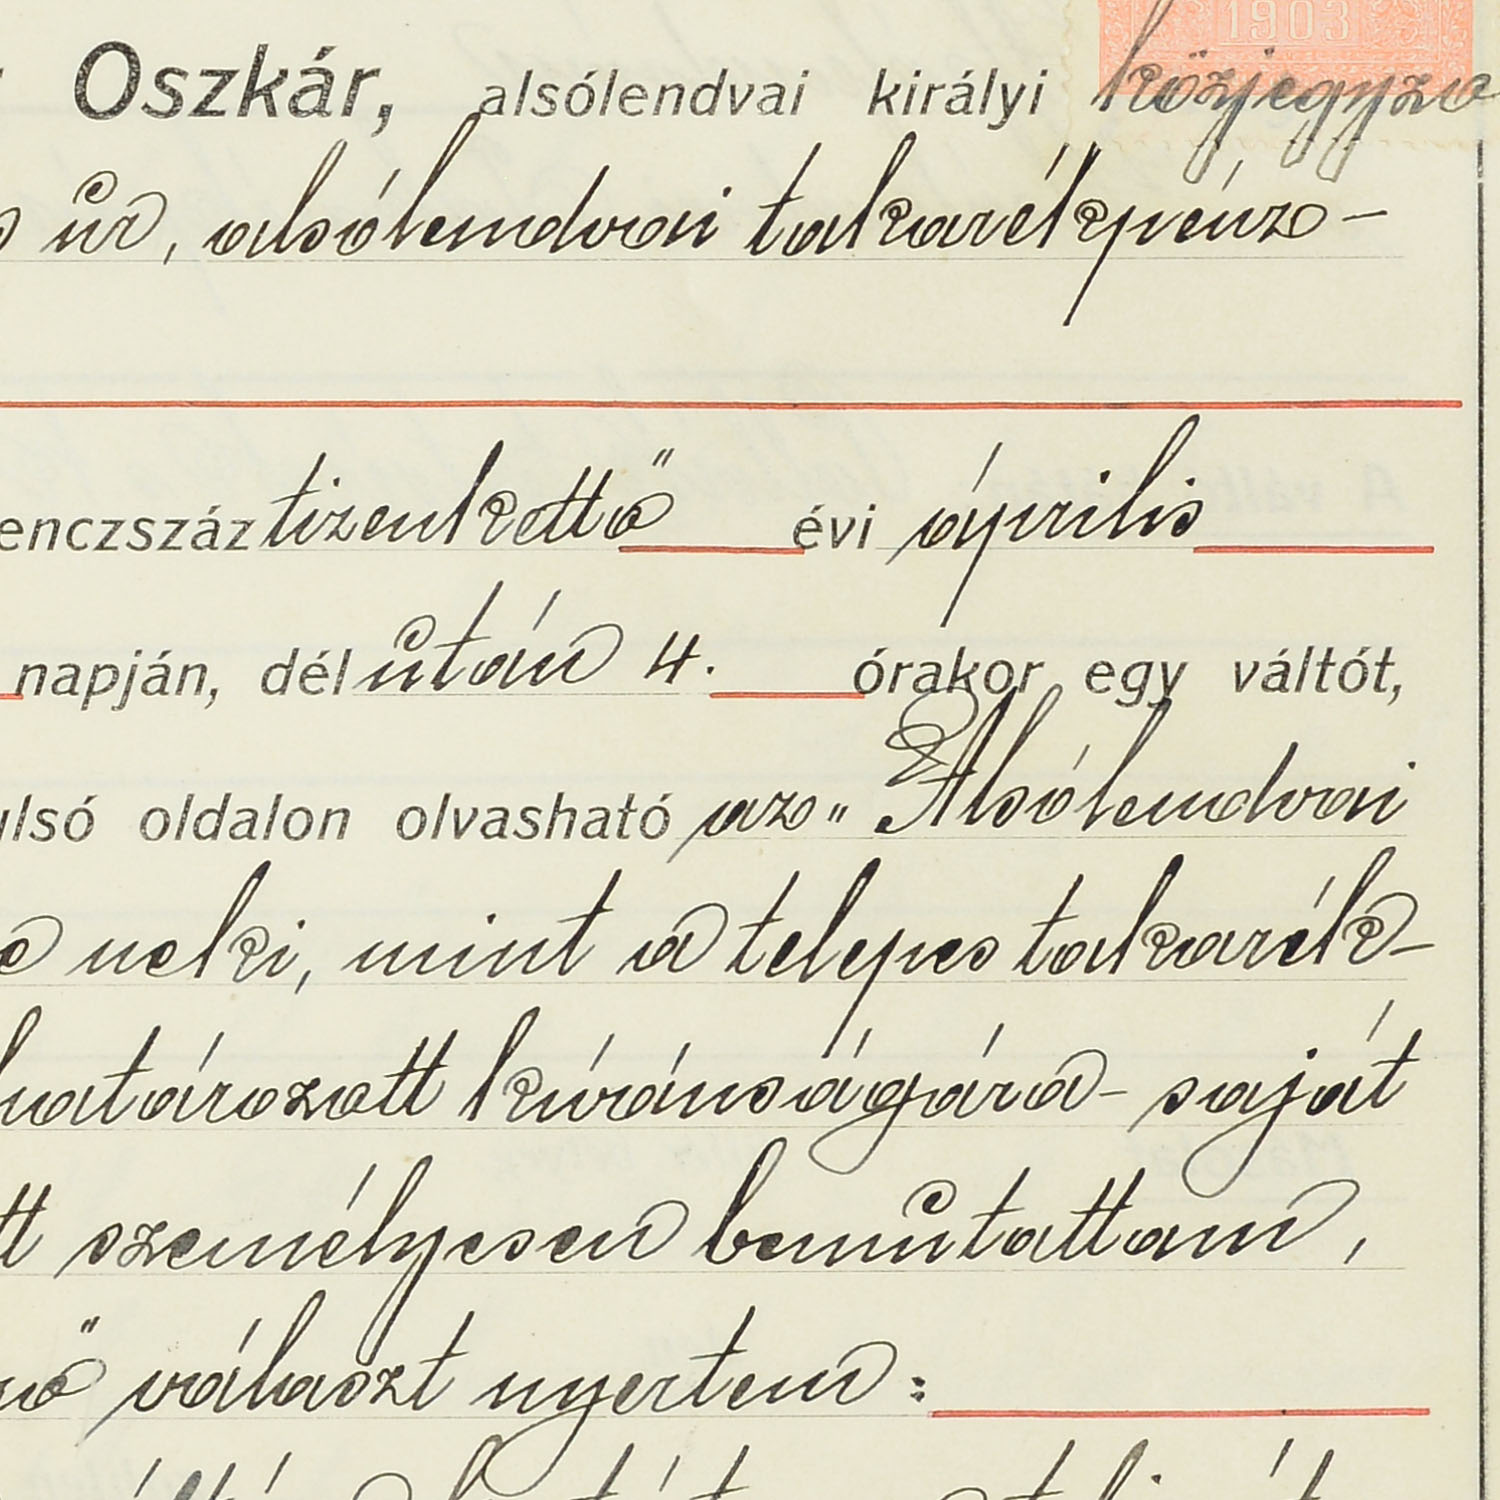 1903
Oszkár, alsólendvai királyi közjegyző
úr, alsólendvai takarékpénz-
enczszáz tizenkettő évi április
napján, délután 4. órakor egy váltót,
ulsó oldalon olvasható az „Alsólendvai
neki, mint a telepes takarék-
határozott kívánságára - saját
tt személyesen bemutattam,
választ nyertem: